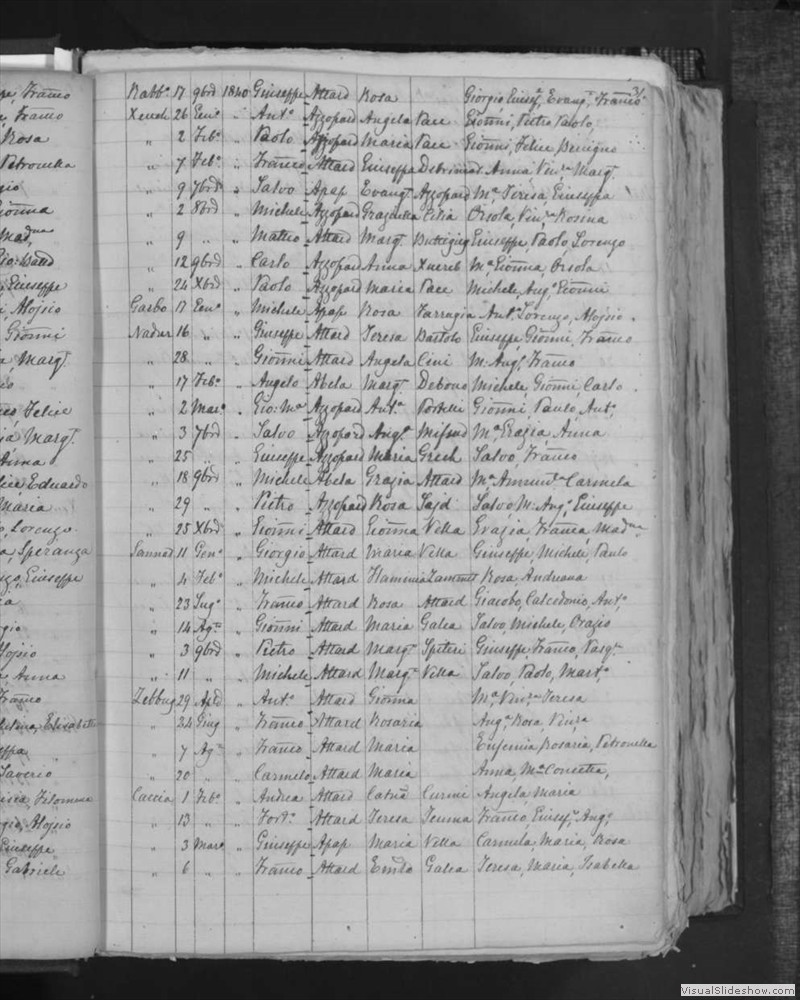 31
pe, Franco
Franco
Rosa
Petronella
Gionna
Madna
Gio: Batta
Giuseppe
Aloisio
Gionni
Margt
Felice
ia Margt
Anna
lice, Eduardo
Maria
Lorenzo
a, Speranza
Giuseppe
gio
Aloisio
Anna
Franco
Elisabetta
eppa
Saverio
Filomena
gio, Aloisio
Giuseppe
Gabriele
Rabbo 17 9bre 1840 Giuseppe Attard Rosa Giorgio, Giusea, Evangt, Franco
Xeuch 26 Geno " Anto Azzopard Angela Pace Gionni, Pietro Paolo,
" 2 Febo " Paolo Azzopard Maria Pace Gionni, Felice Benigno
" 7 Febo " Franco Attard Giuseppa Debrincat Anna, Vinca Margt
" 9 7bre " Salvo Apap Evangt Azzopard Ma Teresa, Giuseppa
" 2 8bre " Michele Azzopard Graziulla Cilia Orsola, Vinca Rosina
" 9 " " Matteo Attard Margt Buttigieg Giuseppe, Paolo, Lorenzo
" 12 9bre " Carlo Azzopard Anna Xuereb Ma Gionna, Orsola
" 24 Xbre " Paolo Azzopard Maria Pace Michele, Ango Gionni
Garbo 17 Geno " Michele Apap Rosa Farrugia Anto Lorenzo, Aloisio
Nadur 16 " " Giuseppe Attard Teresa Bartolo Giuseppe Gionni, Franco
" 28 " " Gionni Attard Angela Cini M: Angt Franco
" 17 Febo " Angelo Abela Margt Debono Michele, Gionni, Carlo
" 2 Maro " Gio: Ma Azzopard Anta Portelli Gionni, Paulo, Anto
" 3 7bre " Salvo Azzopard Angt Mifsud Ma Grazia, Anna
" 25 " " Giuseppe Azzopard Maria Grech Salvo, Franco
" 18 9bre " Michele Abela Grazia Attard Ma Annunta Carmela
" 29 " " Pietro Azzopard Rosa Sajd Salvo M: Ango Giuseppe
" 25 Xbre " Gionni Attard Gionna Vella Grazia, Franca, Madna
Sannat 11 Geno " Giorgio Attard Maria Vella Giuseppe, Michele, Paulo
" 4 Febo " Michele Attard Flaminia Zammit Rosa Andreana
" 23 Lugo " Franco Attard Rosa Attard Giacobo, Calcedonio, Anto
" 14 Ago " Gionni Attard Maria Galea Salvo, Michele, Orazio
" 3 9bre " Pietro Attard Margt Spiteri Giuseppe, Franco, Pasqe
" 11 " " Michele Attard Margt Vella Salvo, Paolo, Marto
Zebbug 29 Aple " Anto Attard Gionna Ma Vinca Teresa
" 24 Giug " Franco Attard Rosaria Anga Rosa, Vinca
" 7 Ago " Franco Attard Maria Eugenia, Rosaria, Petronella
" 20 " " Carmelo Attard Maria Anna, Ma Concetta,
Caccia 1 Febo " Andrea Attard Catna Curmi Angela, Maria
" 13 " " Forto Attard Teresa Teuma Franco, Giusepe, Ango
" 3 Maro " Giuseppe Apap Maria Vella Carmela, Maria, Rosa
" 6 " " Franco Attard Galea Teresa, Maria, Isabella
VisualSlideshow.com